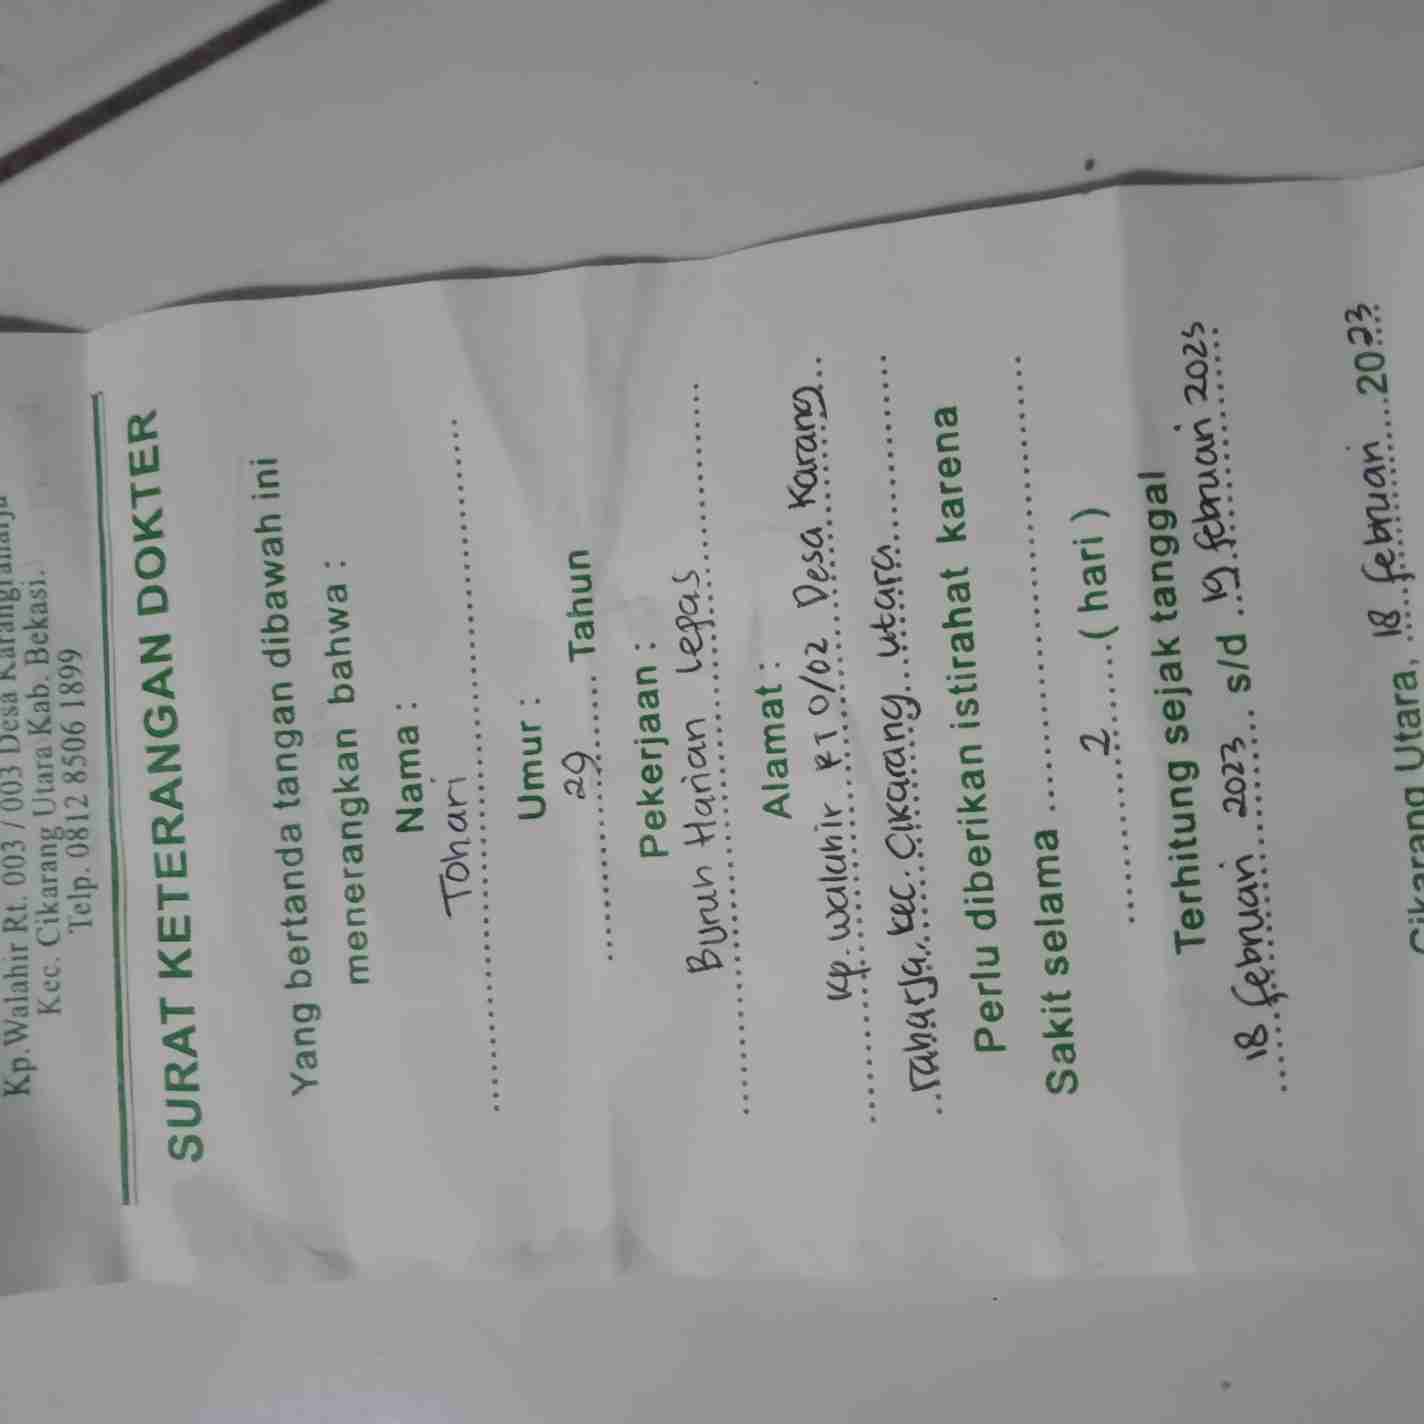 Kp. Walahir Rt. 003 / 003 Desa Karangraharja
Kec. Cikarang Utara Kab. Bekasi.
Telp. 0812 8506 1899
SURAT KETERANGAN DOKTER
Yang bertanda tangan dibawah ini
menerangkan bahwa :
Nama :
Tohari
Umur :
29 Tahun
Pekerjaan :
Buruh Harian Lepas
Alamat :
Kp. Walahir RT 0/02 Desa Karang
raharja, kec. Cikarang utara
Perlu diberikan istirahat karena
Sakit selama
2 ( hari )
Terhitung sejak tanggal
18 februari 2023 s/d 19 februari 2023
Cikarang Utara, 18 februari 2023